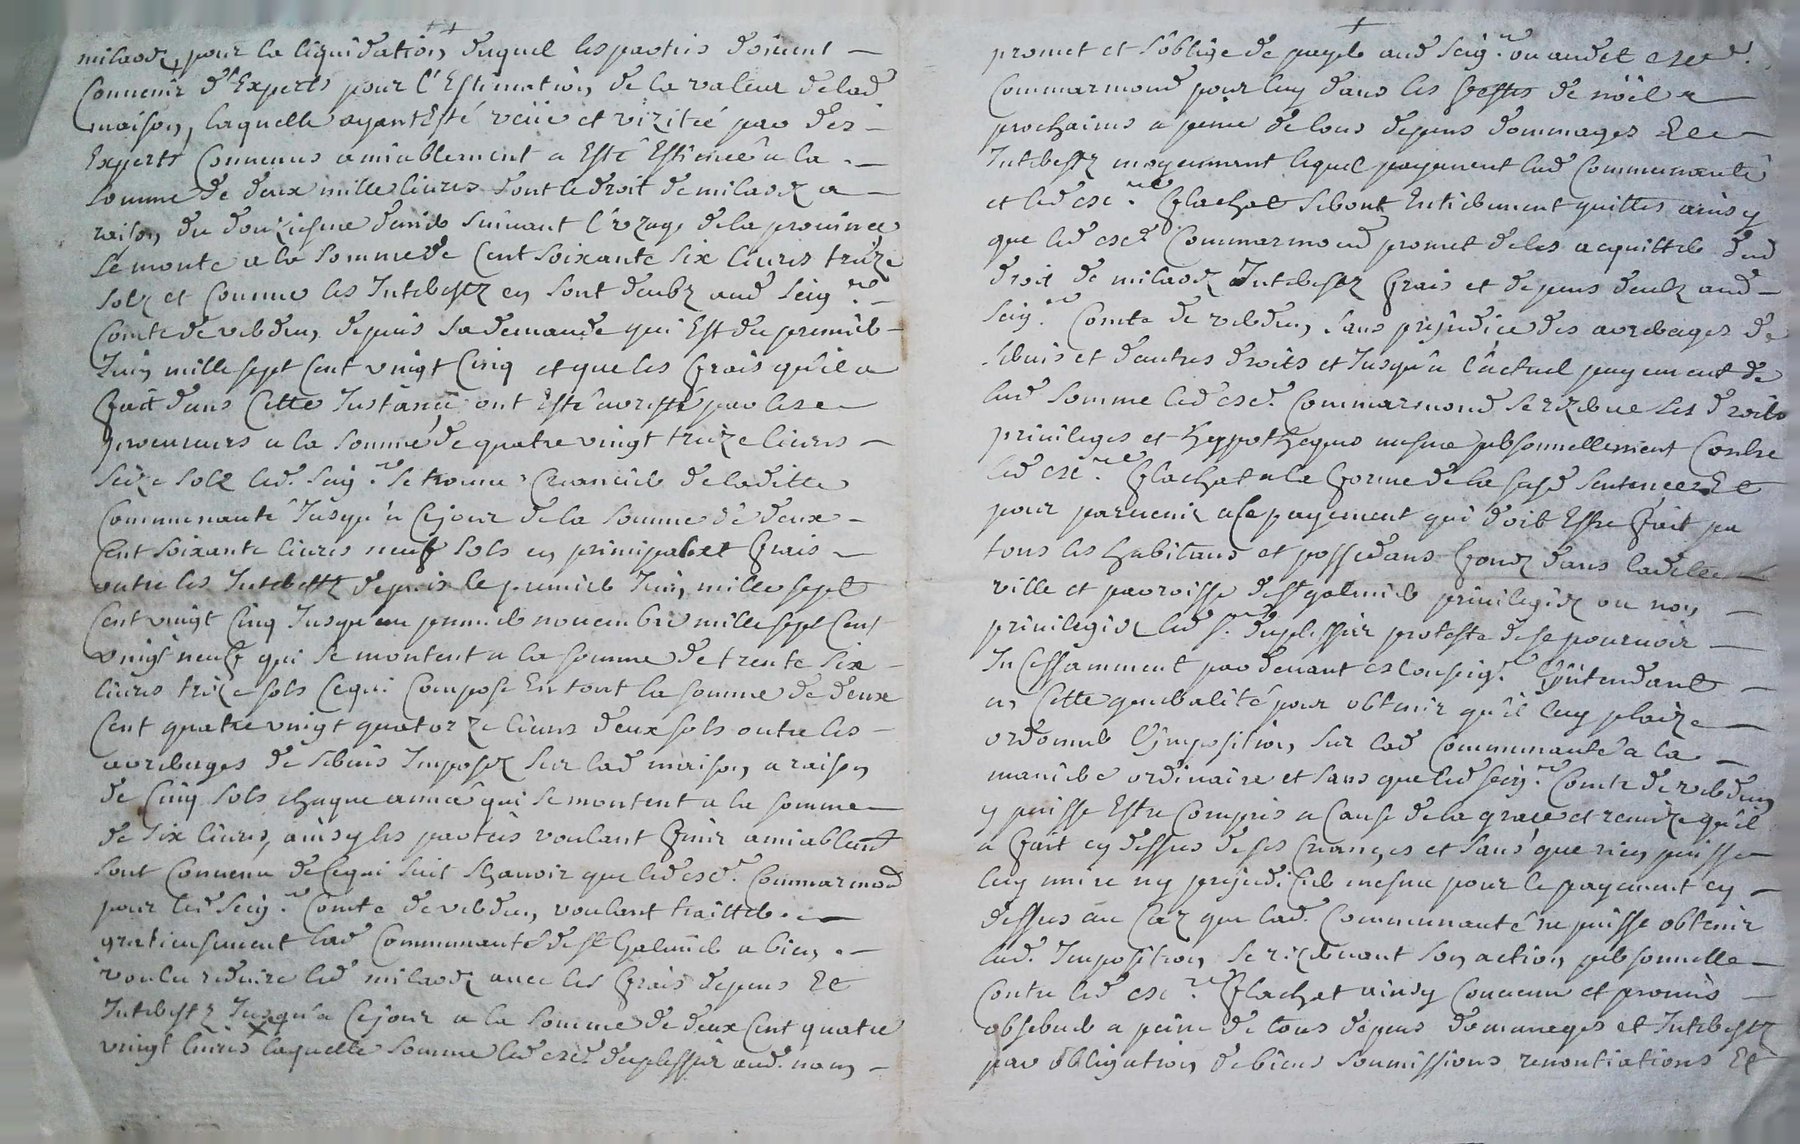 milaodz pour la liquidation duquel les parties doivent
Convenir d'Experts pour l'Estimation de la valeur de lad
maison, laquelle ayant Esté veüe et vizitée par des
Experts Convenus amiablement a Esté Estimée a la
somme de deux mille livres dont le droit de milaodz a
raison du douziesme denier suivant l'uzage de la province
se monte a la somme de Cent soixante six livres treize
solz et comme les Interestz en sont deubz aud Seigr
Comte de verdun, depuis sa demande qui Est du premier
Juin mille sept Cent vingt Cinq et que les frais qu'il a
fait dans Cette Instance, ont Esté arresté par les
procureurs a la somme de quatre vingt treize livres
seize solz led. Seigr se trouve Creancier de laditte
Communauté Jusqu'a Cejour de la somme de deux
Cent soixante livres neuf sols en principal et frais
outre les Interestz depuis le premier Juin mille sept
Cent vingt Cinq Jusqu'au premier novembre mille sept Cent
vingt neuf qui se montent a la somme de trente six
livres treize sols Cequi Compose En tout la somme de deux
Cent quatre vingt quatorze livres deux sols outre les
arrerages de servis Imposez sur lad maison, a raison
de Cinq sols chaque année qui se montent a la somme
de six livres, ainsy les parties voulant finir amiablemt
sont Convenu de Cequi suit Sçavoir que led escr. Commarmond
pour led Seigr Comte de verdun, voulant traitter
gratieusement lad Communauté de St Galmier a bien
voulu reduire led milaodz avec les frais depens Et
Interestz Jusqu'a Cejour a la somme de deux Cent quatre
vingt livres laquelle somme led escr duplessir aud. nom
promet et s'oblige de payer aud Seigr ou audit escr.
Commarmond pour luy dans les festes de noël
prochaines a peine de tous depens dommages Et
Interestz moyennant lequel payement lad Communauté
et led esc. re Flachat seront Entierement quittes ainsy
que led escr Commarmond promet de les acquitter dud
droit de milaodz Interestz frais et depens deubz aud
Seigr Comte de verdun, sans prejudice des arrerages de
servis et d'autres droits et Jusqu'a l'actuel payement de
lad somme led escr. Commarmond se rezerve les droits
privileges et hyppotheques mesme personnellement Contre
led esc. re Flachat a la forme de la susd sentence Et
pour parvenir a Ce payement qui doit Estre fait pa
tous les habitans et possedans fondz dans ladite
ville et parroisse de St galmier privilegiez ou non
privilegiez led sr. duplessir proteste de se pourvoir
Incessamment par devant monseigr l'Intendant
en Cette qualité pour obtenir qu'il luy plaize
ordonner l'Imposition, sur lad Communauté a la
maniere ordinaire et sans que led Seigr Comte de verdun
y puisse Estre Compris a Cause de la grace et remize qu'il
a fait cy dessus de ses Creances et sans que rien puisse
luy nuire ny prejudicier mesme pour le payement cy
dessus au Caz que lad. Communauté ne puisse obtenir
lad. Imposition, se rezervant son action, personnelle
Contre led esc. re Flachat ainsy Convenu et promis
observer a peine de tous depens domages et Interestz
par obligation de biens soumissions renontiations Et